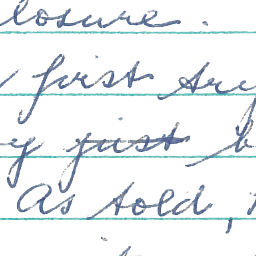 losure.
first try
y just b
As told,